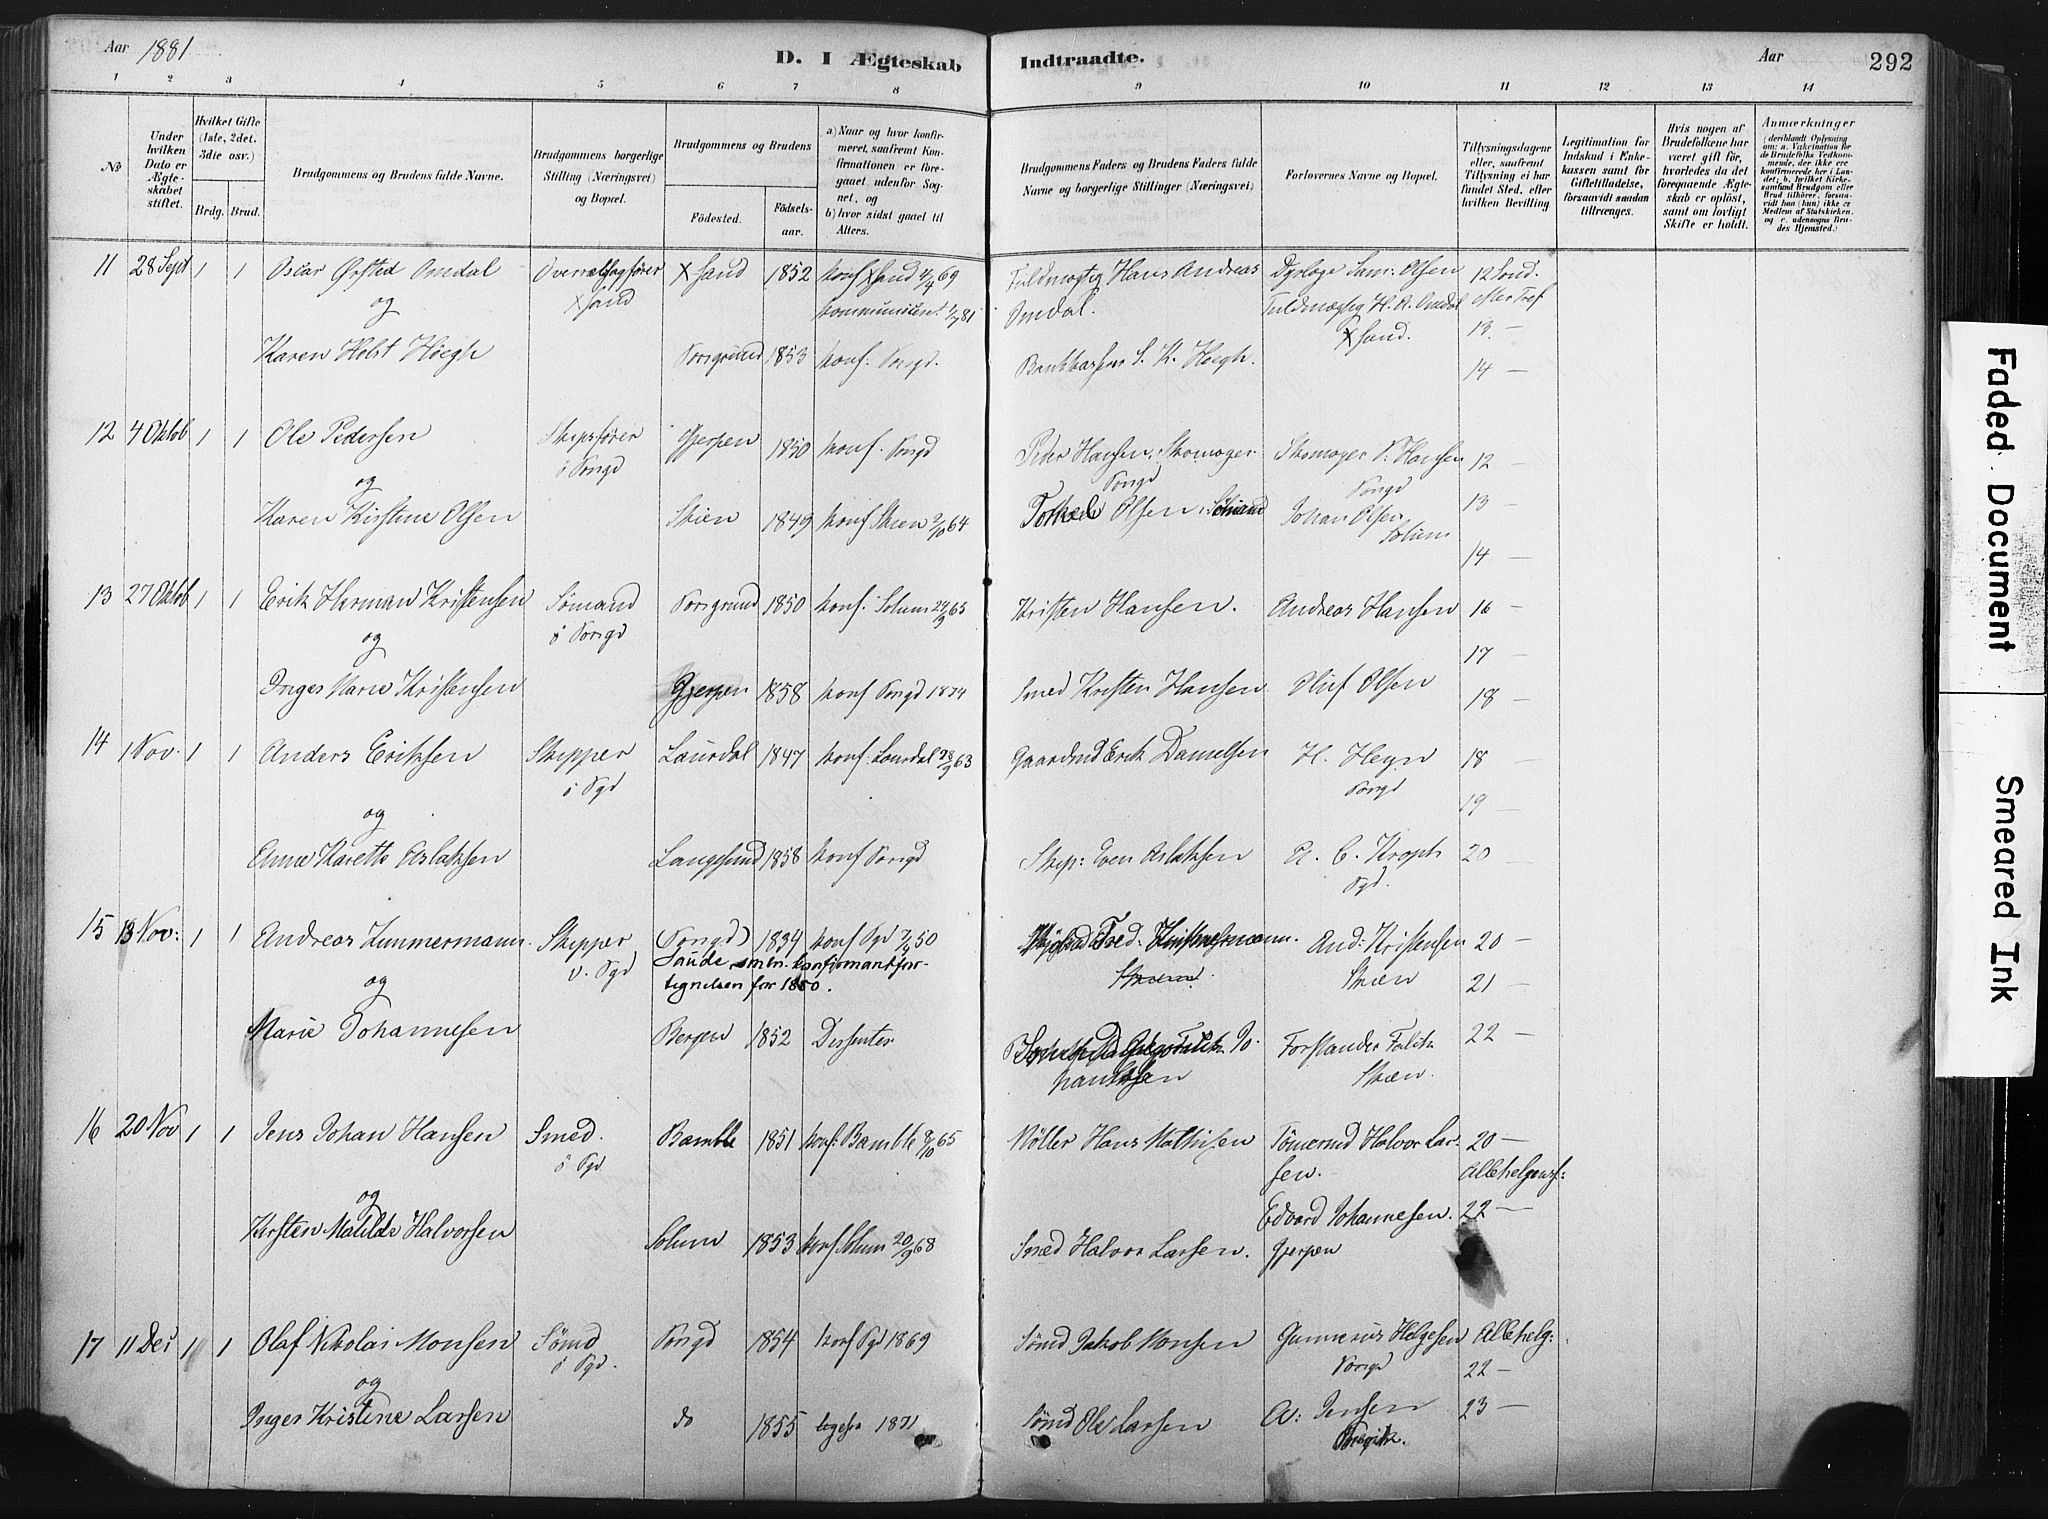 Aar 1881
D. I Ægteskab Indtraadte.
Aar
292
1 2 3 4 5 6 7 8 9 10 11 12 13 14
No
Under hvilken Dato er Ægteskabet stiftet.
Hvilket Gifte (1ste, 2det. 3die osv.)
Brdg. Brud.
Brudgommens og Brudens fulde Navne.
Brudgommens borgerlige Stilling (Næringsvei) og Bopæl.
Brudgommens og Brudens
Födested.
Födsels-aar.
a) Naar og hvor konfirmeret, saafremt Konfirmationen er foregaaet udenfor Sognet, og
b) hvor sidst gaaet til Alters.
Brudgommens Faders og Brudens Faders fulde Navne og borgerlige Stillinger (Næringsvei)
Forlovernes Navne og Bopæl.
Tillysningsdagene eller, saafremt Tillysning ei har fundet Sted, efter hvilken Bevilling.
Legitimation for Indskud i Enkekassen samt for Giftetilladelse, forsaavidt saadan tiltrænges.
Hvis nogen af Brudefolkene har været gift för, hvorledes da det foregaaende Ægteskab er oplöst, samt om lovligt Skifte er holdt.
Anmærkninger
(deriblandt Oplysning om: a. Vakcination for de Brudefolks Vedkommende, der ikke ere konfirmerede her i Landet; b. hvilket Kirkesamfund Brudgom eller Brud tilhörer, forsaavidt han (hun) ikke er Medlem af Statskirken, og c. udensogns Brudes Hjemsted.)
11 28 Sept 1 1 Oscar Ørsted Omdal Overretssagfører Xsand 1852 konf Xsand 4/4 69 Fuldmægtig Hans Andreas Dyrlæge Sam: Olsen 12 Sønd.
Xsand Omdal. Fuldmægtig H. A. Omdal
og Xsand. 13 —
Karen Holst Høegh Porsgrund 1853 konf: Porsgd. Bankkasserer S. K. Høegh. 14 —
12 4 Oktob 1 1 Ole Pedersen Skipsfører Gjerpen 1850 konf. Porsgd Peder Hansen, Skomager Skomager P. Hansen 12 —
Porsgd Porsgd
og 13 —
Karen Kirstine Olsen Skien 1849 konf Skien 2/10 64 Olsen, Sömand Johan Olsen
Solum 14 —
13 27 Oktob 1 1 Erik Herman Kristensen Sömand Porsgrund 1850 konf: Solum 24/9 65 Kristen Hansen. Andreas Hansen 16 —
ö Porsgd
og 17 —
Inger Marie Kristensen Gjerpen 1858 konf Porsgd 1874 Smed Kristen Hansen Oluf Olsen 18 —
14 1 Nov. 1 1 Anders Eriksen Skipper Laurdal 1847 konf: Laurdal 28/9 63 Gaardmd Erik Danielsen H. Heyn 18 —
ö Pgd Porsgd
og 19 —
Anne Karette Aslaksen Langesund 1858 konf Porsgd Skip: Even Aslaksen A. C. Kroph 20 —
Pgd.
15 13 Nov: 1 1 Andreas Zimmermann Skipper (Porsgd) 1834 konf Pgd 7/4 50 Fred. And: Kristensen 20 —
v. Pgd Saude, smln. konfirmantfor- Skien. Skien 21 —
og tegnelsen for 1850.
Marie Johannesen Bergen 1852 Dissenter Forstander Falck 22 —
Skien.
16 20 Nov 1 1 Jens Johan Hansen Smed. Bamble 1851 konf: Bamble 8/10 65 Möller Hans Mathisen Tömermd Halvor Lar- 20 —
ö Pgd sen. — Allehelgensf:
og Edvard Johannesen. 22 —
Kirsten Matilde Halvorsen Solum 1853 konf Solum 20/9 68 Smed Halvor Larsen. Gjerpen
17 11 Des 1 1 Olaf Nikolai Monsen Sömd Porsgd 1854 konf Pgd 1869 Sömd Jakob Monsen Gunnerius Helgesen Allehelg:
ö Pgd. Porsgd 22 —
og
Inger Kristine Larsen do 1855 ligesaa 1871 Sömd Ole Larsen A: Jensen 23 —
Brevik.
Faded Document
Smeared Ink